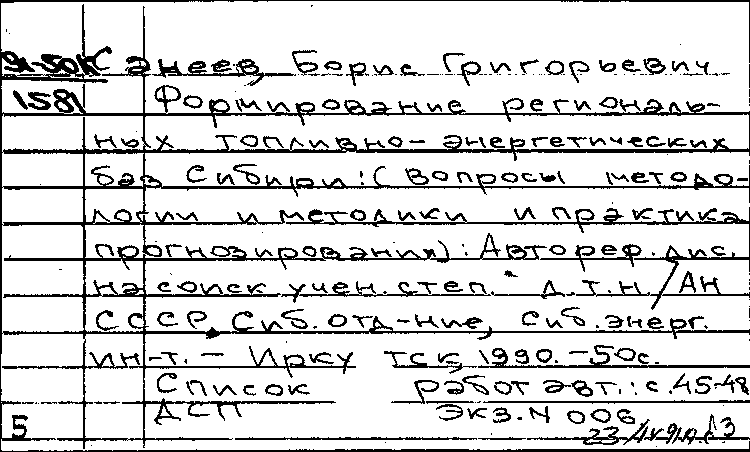 91-50К Санеев, Борис Григорьевич
1581 Формирование региональ-
ных топливно-энергетических
баз Сибири: (Вопросы методо-
логии и методики и практика
прогнозирования): Автореф. дис.
на соиск. учен. степ. д.т.н. / АН
СССР, Сиб. отд-ние, Сиб. энерг.
ин-т. - Иркутск, 1990. - 50с.
Список работ авт.: с. 45-48
ДСП Экз. N 006
5 23/IV 91